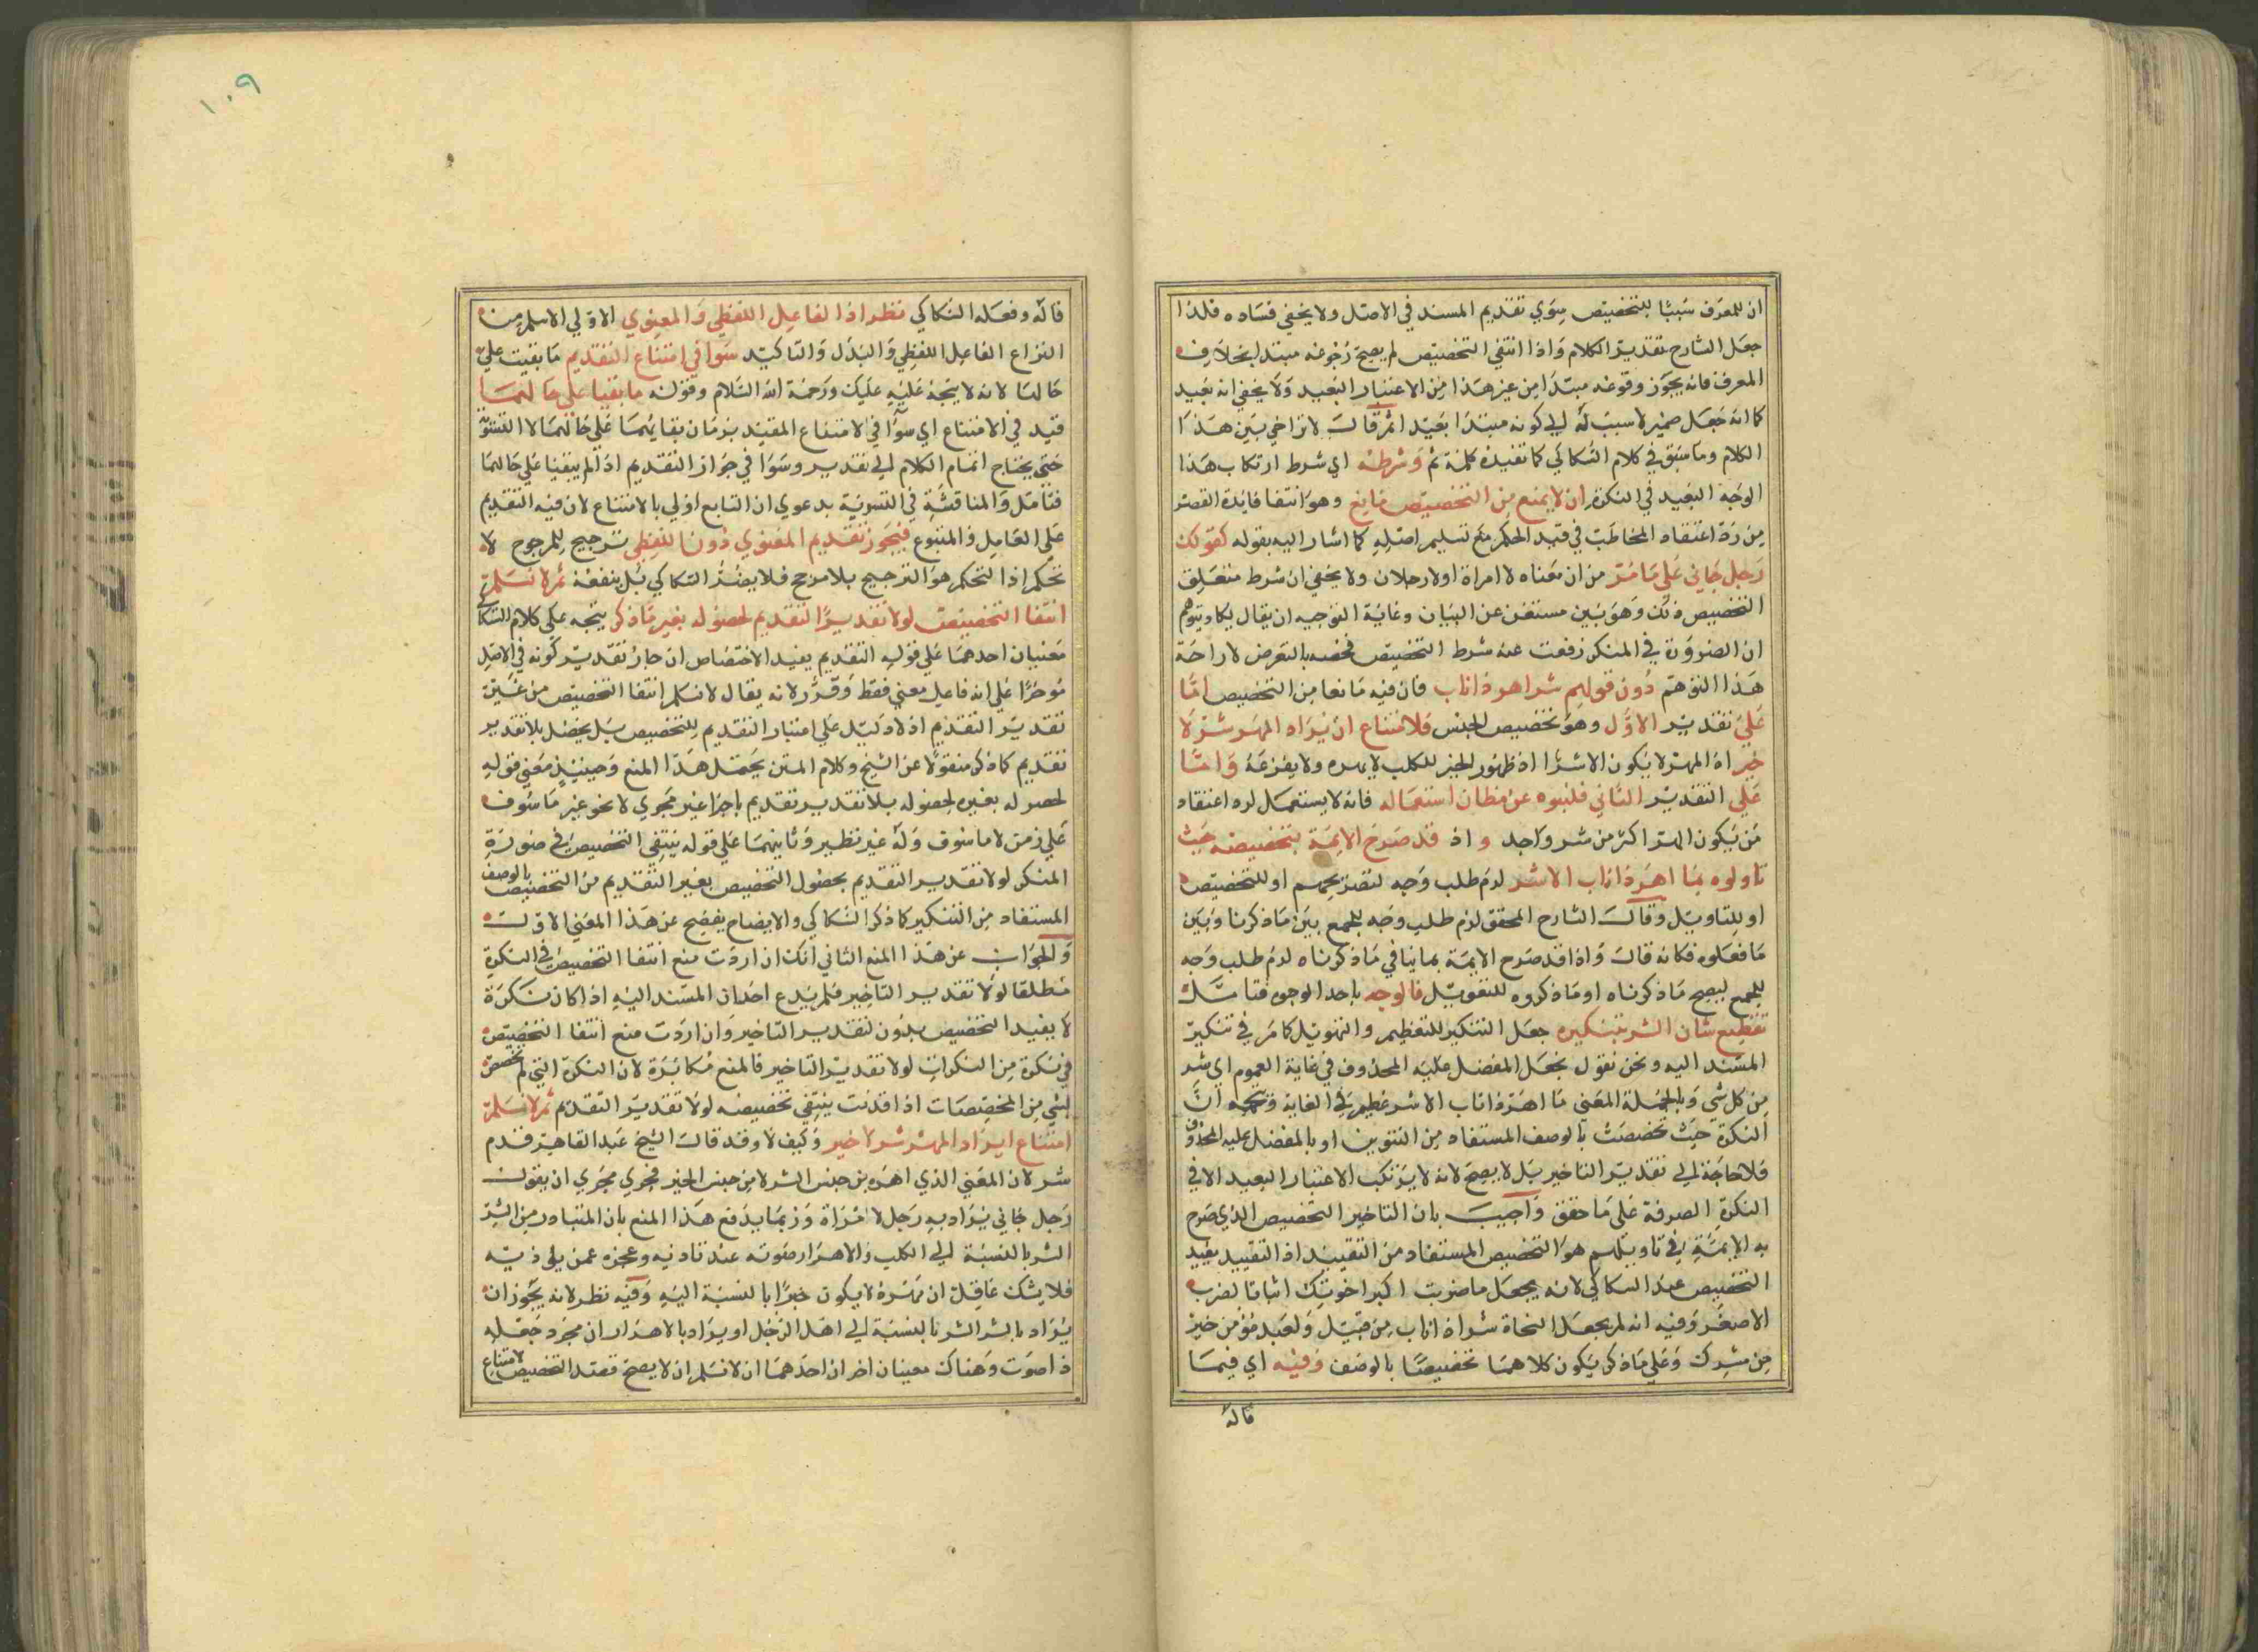 ان للمعرف سببا للتخصيص سوي تقديم المسند في الاصل ولا يخفي فساده فلذا
جعل الشارح تقدير الكلام واذا انتفي التخصيص لم يصح رجوعه مبتدا بخلاف
المعرف فانه يجوز وقوعه مبتدا من غير هذا من الاعتبار البعيد ولا يخفي انه بعيد
كما انه جعل ضمير لا سبب له الي كونه مبتدا بعيد ثم قال لا تراخي بين هذا
الكلام وما سبق في كلام السكاكي كما تفيده كلمة ثم وشرطه اي شرط ارتكاب هذا
الوجه البعيد في النكرة ان لا يمنع من التخصيص مانع وهو انتفا فائدة القصر
من رد اعتقاد المخاطب في قيد الحكم مع تسليم اصله كما اشار اليه بقوله كقولك
رجل جاني علي ما مر من ان معناه لا امراة او لا رجلان ولا يخفي ان شرط متعلق
التخصيص ذلك وهو بين مستغن عن البيان وغاية التوجيه ان يقال يكاد يتوهم
ان الضرورة في المنكر رفعت عنه شرط التخصيص فخصه بالتعرض لازاحة
هذا التوهم دون قولهم شر اهر ذا ناب فان فيه مانعا من التخصيص اما
علي تقدير الاول وهو تخصيص الجنس فلامتناع ان يراد المهر شر لا
خير اذ المهر لا يكون الا شرا اذ ظهور الخير للكلب لا يهره ولا يفزعه واما
علي التقدير الثاني فلنبوه عن مظان استعماله فانه لا يستعمل لرد اعتقاد
من يكون المهر اكثر من شر واحد و اذ قد صرح الايمة بتخصيصه حيث
تاولوه بما اهر ذا ناب الا شر لزم طلب وجه لتصريحهم او للتخصيص
او للتاويل وقال الشارح المحقق لزم طلب وجه للجمع بين ما ذكرنا وبين
ما فعلوه فكانه قال واذا قد صرح الايمة بما ينافي ما ذكرناه لزم طلب وجه
للجمع ليصح ما ذكرناه او ما ذكروه للتقويل فالوجه باحد الوجوه فتامل
تفظيع شان الشر بتنكيره جعل التنكير للتعظيم والتهويل كما مر في تنكير
المسند اليه ونحن نقول بجعل المفضل عليه المحذوف في غاية العموم اي شر
من كل شي وبالجملة المعني ما اهر ذا ناب الا شر عظيم في الغاية ويتجه ان
النكرة حيث تخصصت بالوصف المستفاد من التنوين او بالمفضل عليه المحذوف
فلا حاجة الي تقدير التاخير بل لا يصح لانه لا يرتكب الاعتبار البعيد الا في
النكرة الصرفة علي ما حقق واجيب بان التاخير التخصيص الذي صرح
به الايمة في تاويلهم هو التخصيص المستفاد من التقييد اذ التقييد يفيد
التخصيص عند السكاكي لانه يجعل ما ضربت اكبر اخوتك اثباتا لضرب
الاصغر وفيه انه لم يجعل النحاة شر اذ اناب من قبيل ولعبد مؤمن خير
من مشرك وعلي ما ذكر يكون كلاهما تخصيصا بالوصف وفيه اي فيما
قاله
١٠٩
قاله وفعله السكاكي نظر اذ الفاعل اللفظي والمعنوي الاولي الاسلم من
النزاع الفاعل اللفظي والبدل والتاكيد سوا في امتناع التقديم ما بقيت علي
حالها لانه لا يتجه عليه عليك ورحمة الله السلام وقوله ما بقيا علي حالهما
قيد في الامتناع اي سوا في الامتناع المقيد بزمان بقايهما علي حالهما لا التسوية
حتي يحتاج اتمام الكلام الي تقدير وسوا في جواز التقديم اذا لم يبقيا علي حالهما
فتامل والمناقشة في التسوية بدعوي ان التابع اولي بالامتناع لان فيه التقديم
علي العامل والمتبوع فيجوز تقديم المعنوي دون اللفظي ترجيح للمرجوح لا
تحكم اذ التحكم هو الترجيح بلا مرجح فلا يضر السكاكي بل ينفعه ثم لا نسلم
انتفا التخصيص لولا تقدير التقديم لحصوله بغير ما ذكر يتجه علي كلام السكاكي
معنيان احدهما علي قوله التقديم يفيد الاختصاص ان جاز تقدير كونه في الاصل
موخرا علي انه فاعل معني فقط وقدر لانه يقال لا نسلم انتفا التخصيص من غير
تقدير التقديم اذ لا دليل علي اعتبار التقديم للتخصيص بل يحصل بلا تقدير
تقديم كما ذكر منقولا عن الشيخ وكلام المتن يحتمل هذا المنع وحينيذ معني قوله
لحصوله بغيره لحصوله بلا تقدير تقديم باجرا غير مجري لا نحو غير ما سوف
علي زمن لا ما سوف وله غير نظير وثانيهما علي قوله ينتفي التخصيص في صورة
المنكر لولا تقدير التقديم بحصول التخصيص بغير التقديم من التخصيص بالوصف
المستفاد من التنكير كما ذكر السكاكي والايضاح يفصح عن هذا المعني الاول
والجواب عن هذا المنع الثاني انك ان اردت منع انتفا التخصيص في النكرة
مطلقا لولا تقدير التاخير فلم يدع احد ان المسند اليه اذا كان نكرة
لا يفيد التخصيص بدون تقدير التاخير وان اردت منع انتفا التخصيص
في نكرة من النكرات لولا تقدير التاخير فالمنع مكابرة لان النكرة التي لم تخصص
بشي من المخصصات اذا قدمت ينتفي تخصيصه لولا تقدير التقديم ثم لا نسلم
امتناع ايراد المهر شر لا خير وكيف لا وقد قال الشيخ عبد القاهر قدم
شر لان المعني الذي اهره من جنس الشر لا من جنس الخير فجري مجري ان يقول
رجل جاني يراد به رجل لا امراة وربما يدفع هذا المنع بان المتبادر من الشر
الشر بالنسبة الي الكلب والاهرار صوته عند تاذيه وعجزه عمن يلي ذيته
فلا يشك عاقل ان مهره لا يكون خيرا بالنسبة اليه وفيه نظر لانه يجوز ان
يراد بالشر الشر بالنسبة الي اهل الرجل او يراد بالاهرار ان مجرد جعله
ذا صوت وهناك معينان اخر ان احدهما ان لا نسلم ان لا يصح قصد التخصيص لامتناع